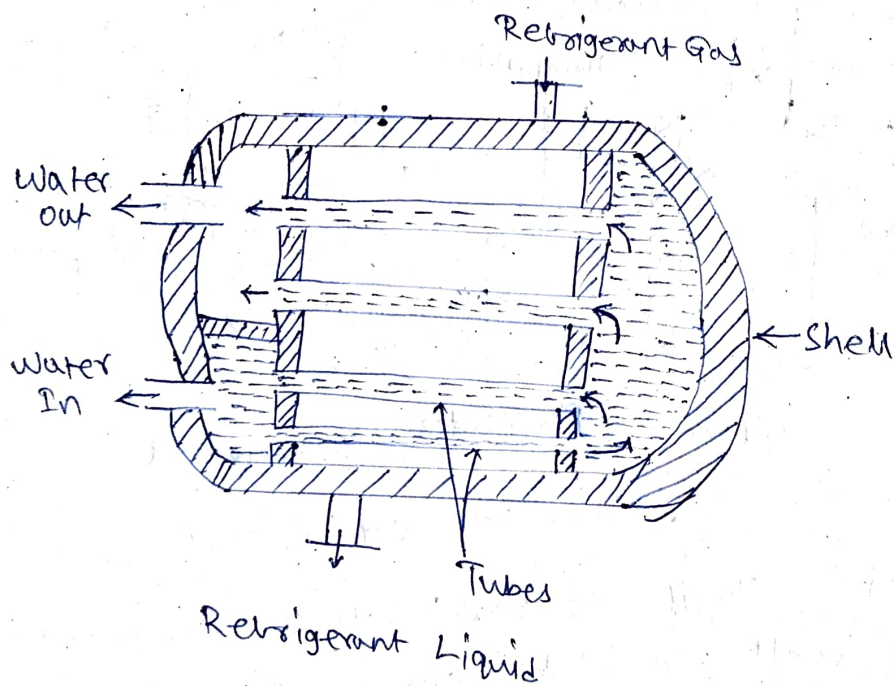 Refrigerant Gas
Water
out
Shell
Water
In
Tubes
Refrigerant Liquid